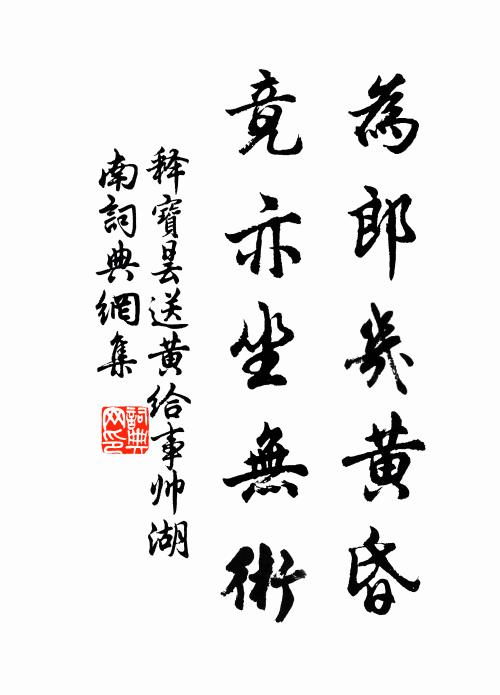 為郎幾黃昏
竟亦坐無術
释寶曇送黄给事帅湖
南詞典網集
詞典
网印